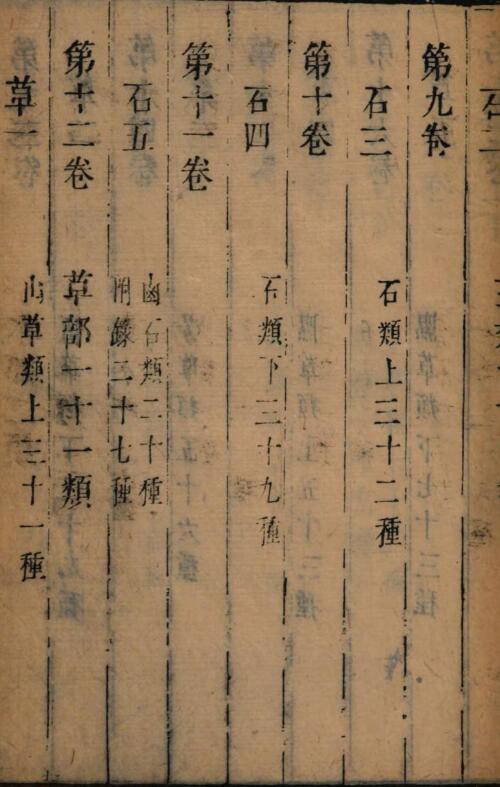 石二
第九卷
石三　石類上三十二種
第十卷
石四　石類下三十九種
第十一卷
石五　鹵石類二十種
附錄二十七種
第十二卷　草部一十一類
草一　山草類上三十一種